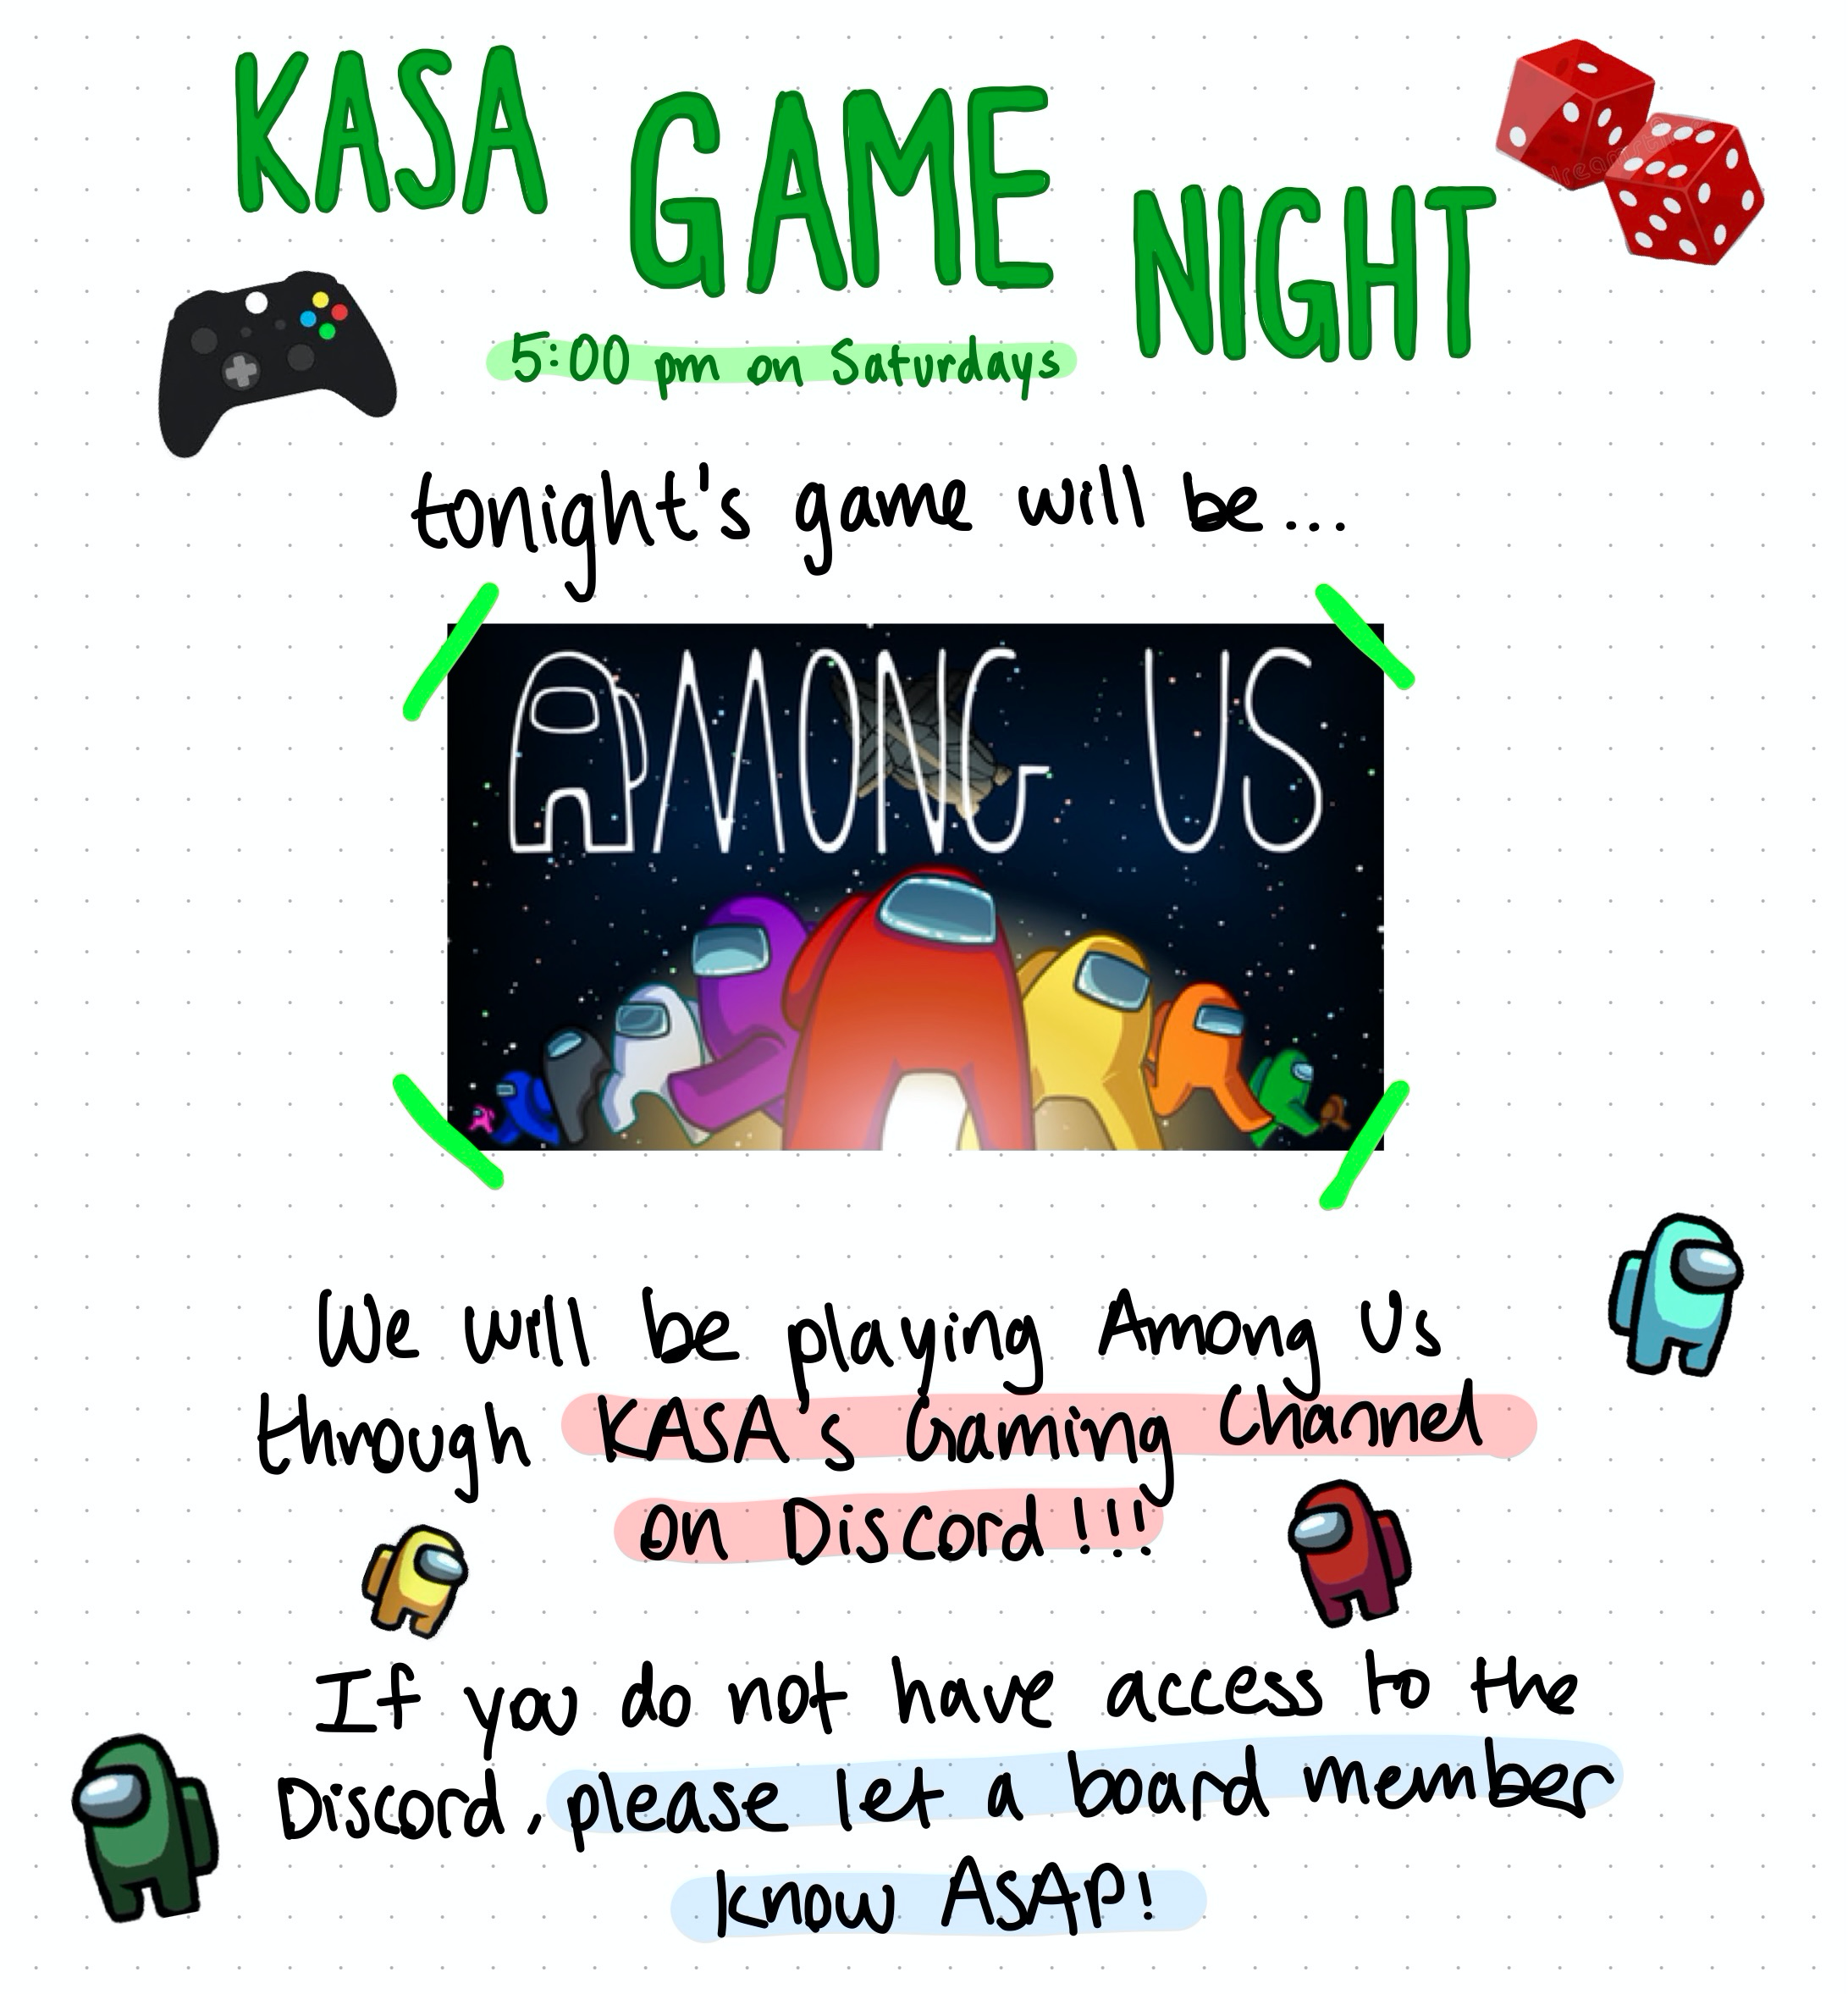 KASA GAME NIGHT
5:00 pm on Saturdays
tonight's game will be...
AMONG US
We will be playing Among Us
through KASA's Gaming Channel
on Discord!!!
If you do not have access to the
Discord, please let a board member
know ASAP!